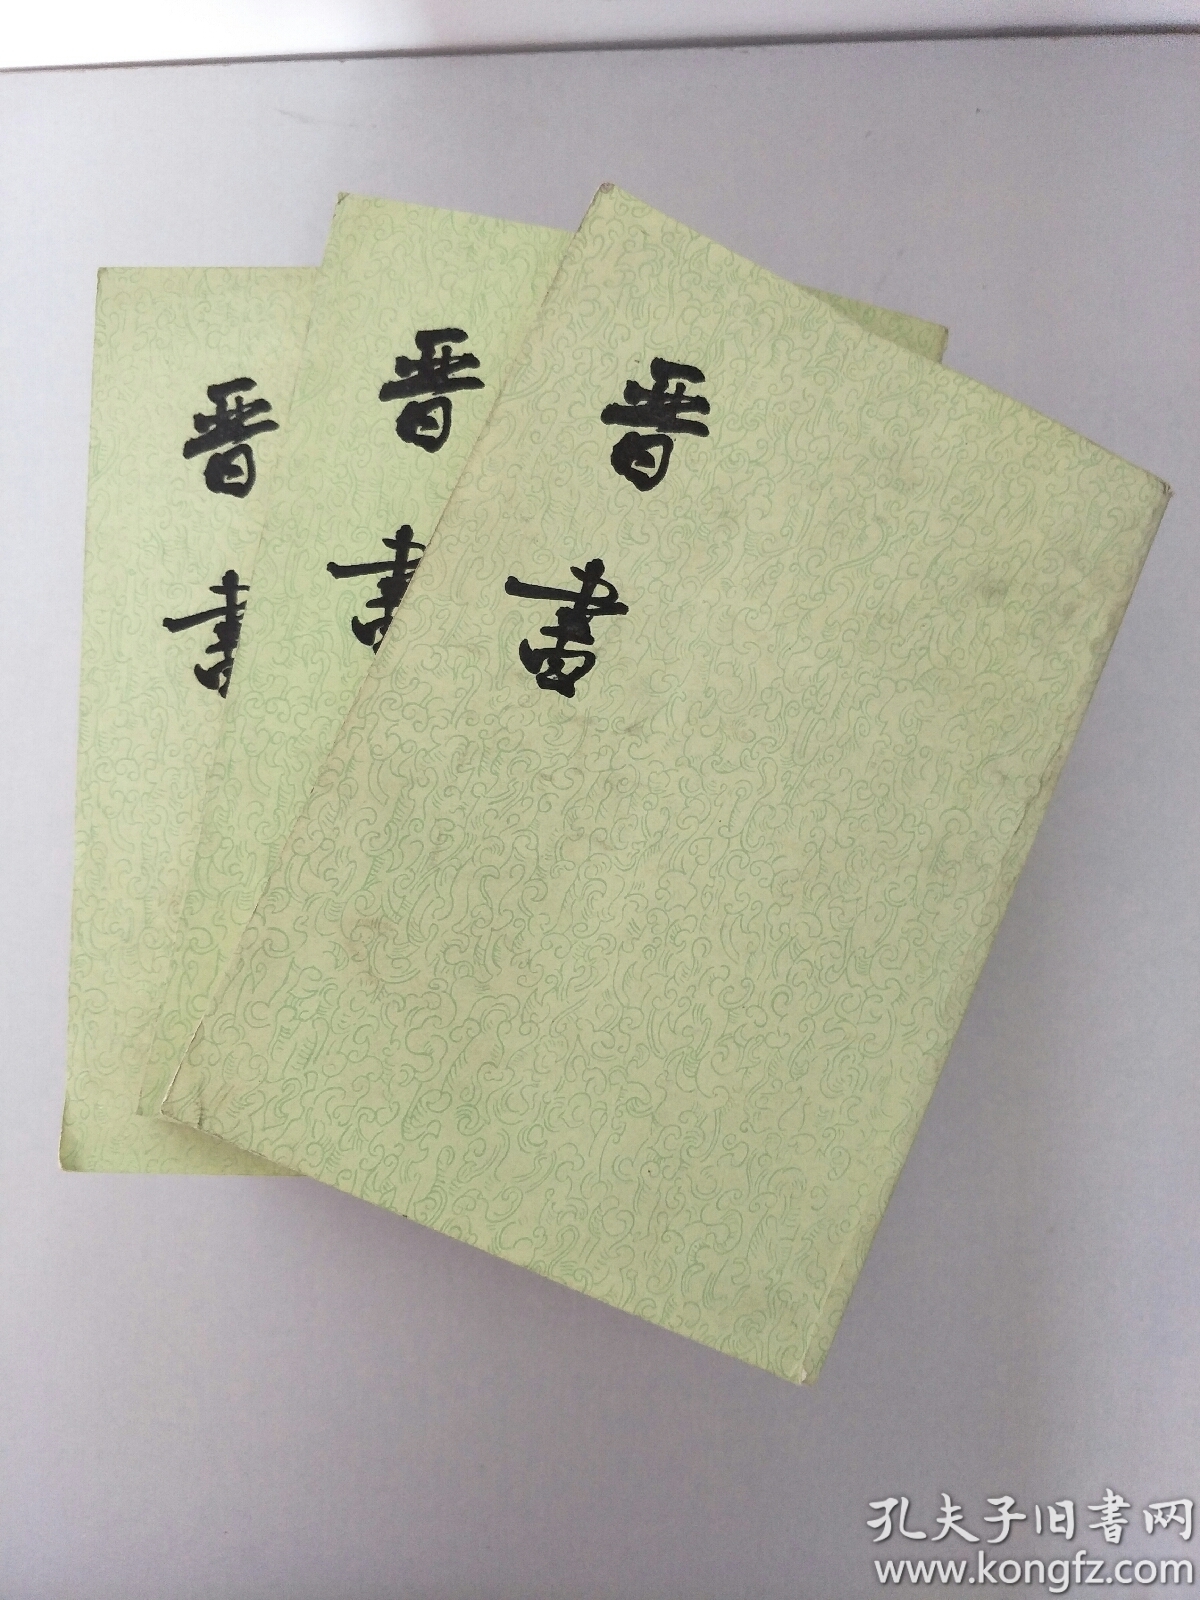 晋書
晋書
晋書
孔夫子旧書网
www.kongfz.com